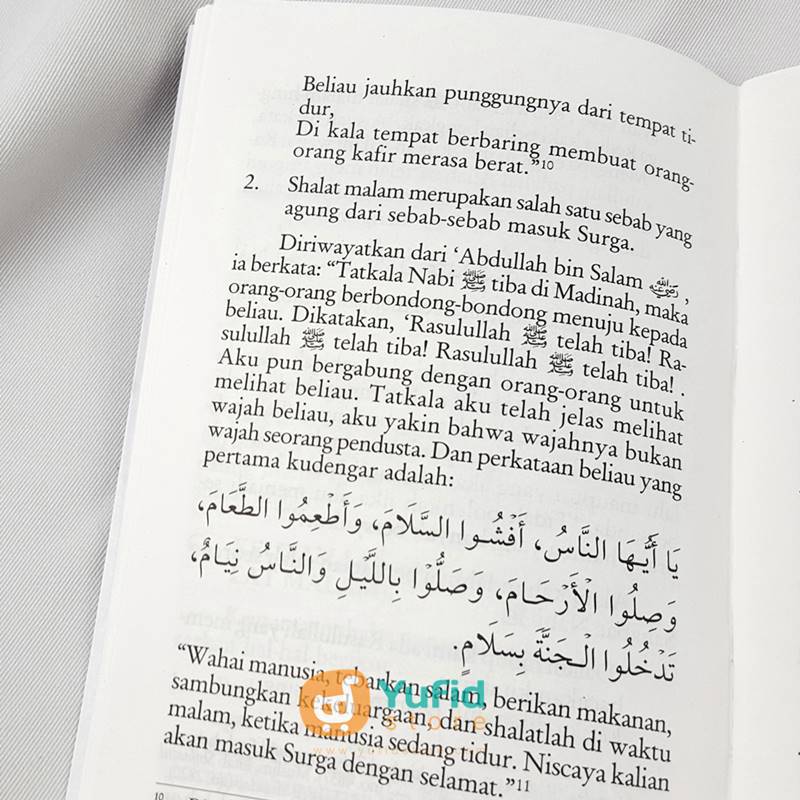 Beliau jauhkan punggungnya dari tempat ti-
dur,
Di kala tempat berbaring membuat orang-
orang kafir merasa berat."10
2. Shalat malam merupakan salah satu sebab yang
agung dari sebab-sebab masuk Surga.
Diriwayatkan dari 'Abdullah bin Salam ,
ia berkata: "Tatkala Nabi ﷺ tiba di Madinah, maka
orang-orang berbondong-bondong menuju kepada
beliau. Dikatakan, 'Rasulullah ﷺ telah tiba! Ra-
sulullah ﷺ telah tiba! Rasulullah ﷺ telah tiba! .
Aku pun bergabung dengan orang-orang untuk
melihat beliau. Tatkala aku telah jelas melihat
wajah beliau, aku yakin bahwa wajahnya bukan
wajah seorang pendusta. Dan perkataan beliau yang
pertama kudengar adalah:
يَا أَيُّهَا النَّاسُ، أَفْشُوا السَّلَامَ، وَأَطْعِمُوا الطَّعَامَ،
وَصِلُوا الْأَرْحَامَ، وَصَلُّوْا بِاللَّيْلِ وَالنَّاسُ نِيَامٌ،
تَدْخُلُوا الْجَنَّةَ بِسَلَامٍ.
"Wahai manusia, tebarkan salam, berikan makanan,
sambungkan kekeluargaan, dan shalatlah di waktu
malam, ketika manusia sedang tidur. Niscaya kalian
akan masuk Surga dengan selamat."11
Yufid
store
10